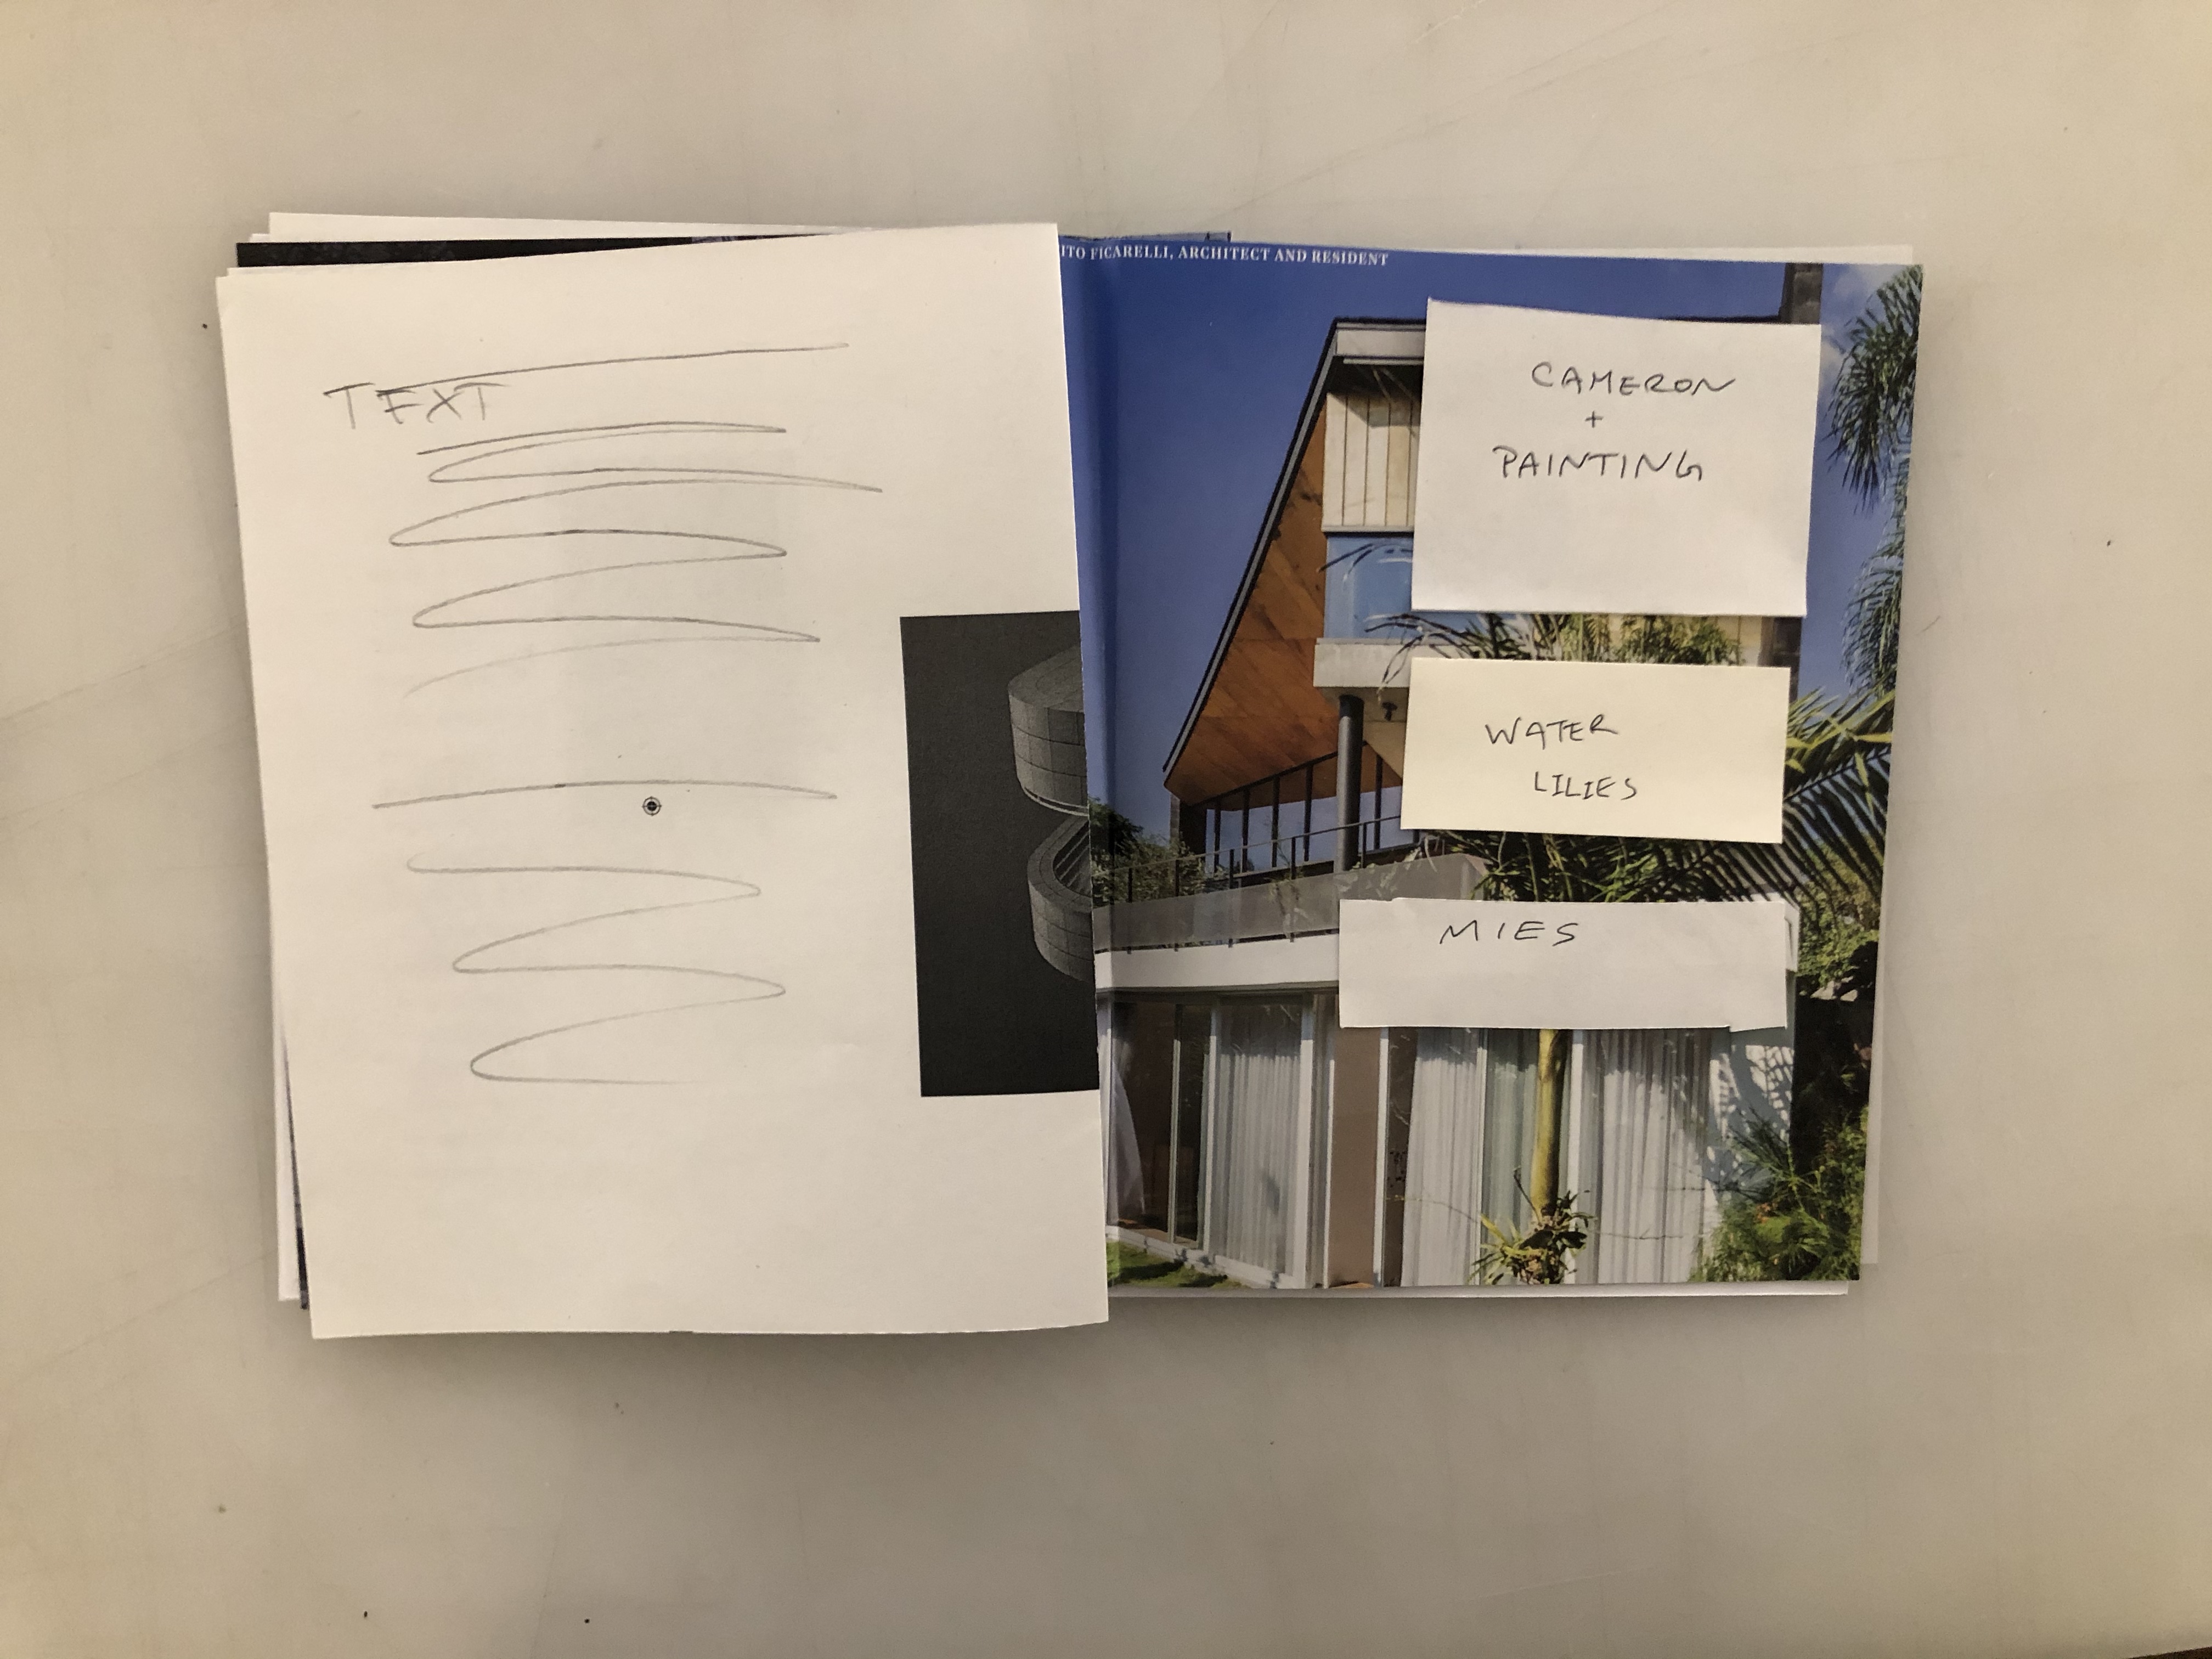 TEXT
ITO FICARELLI, ARCHITECT AND RESIDENT
CAMERON
+
PAINTING
WATER
LILIES
MIES